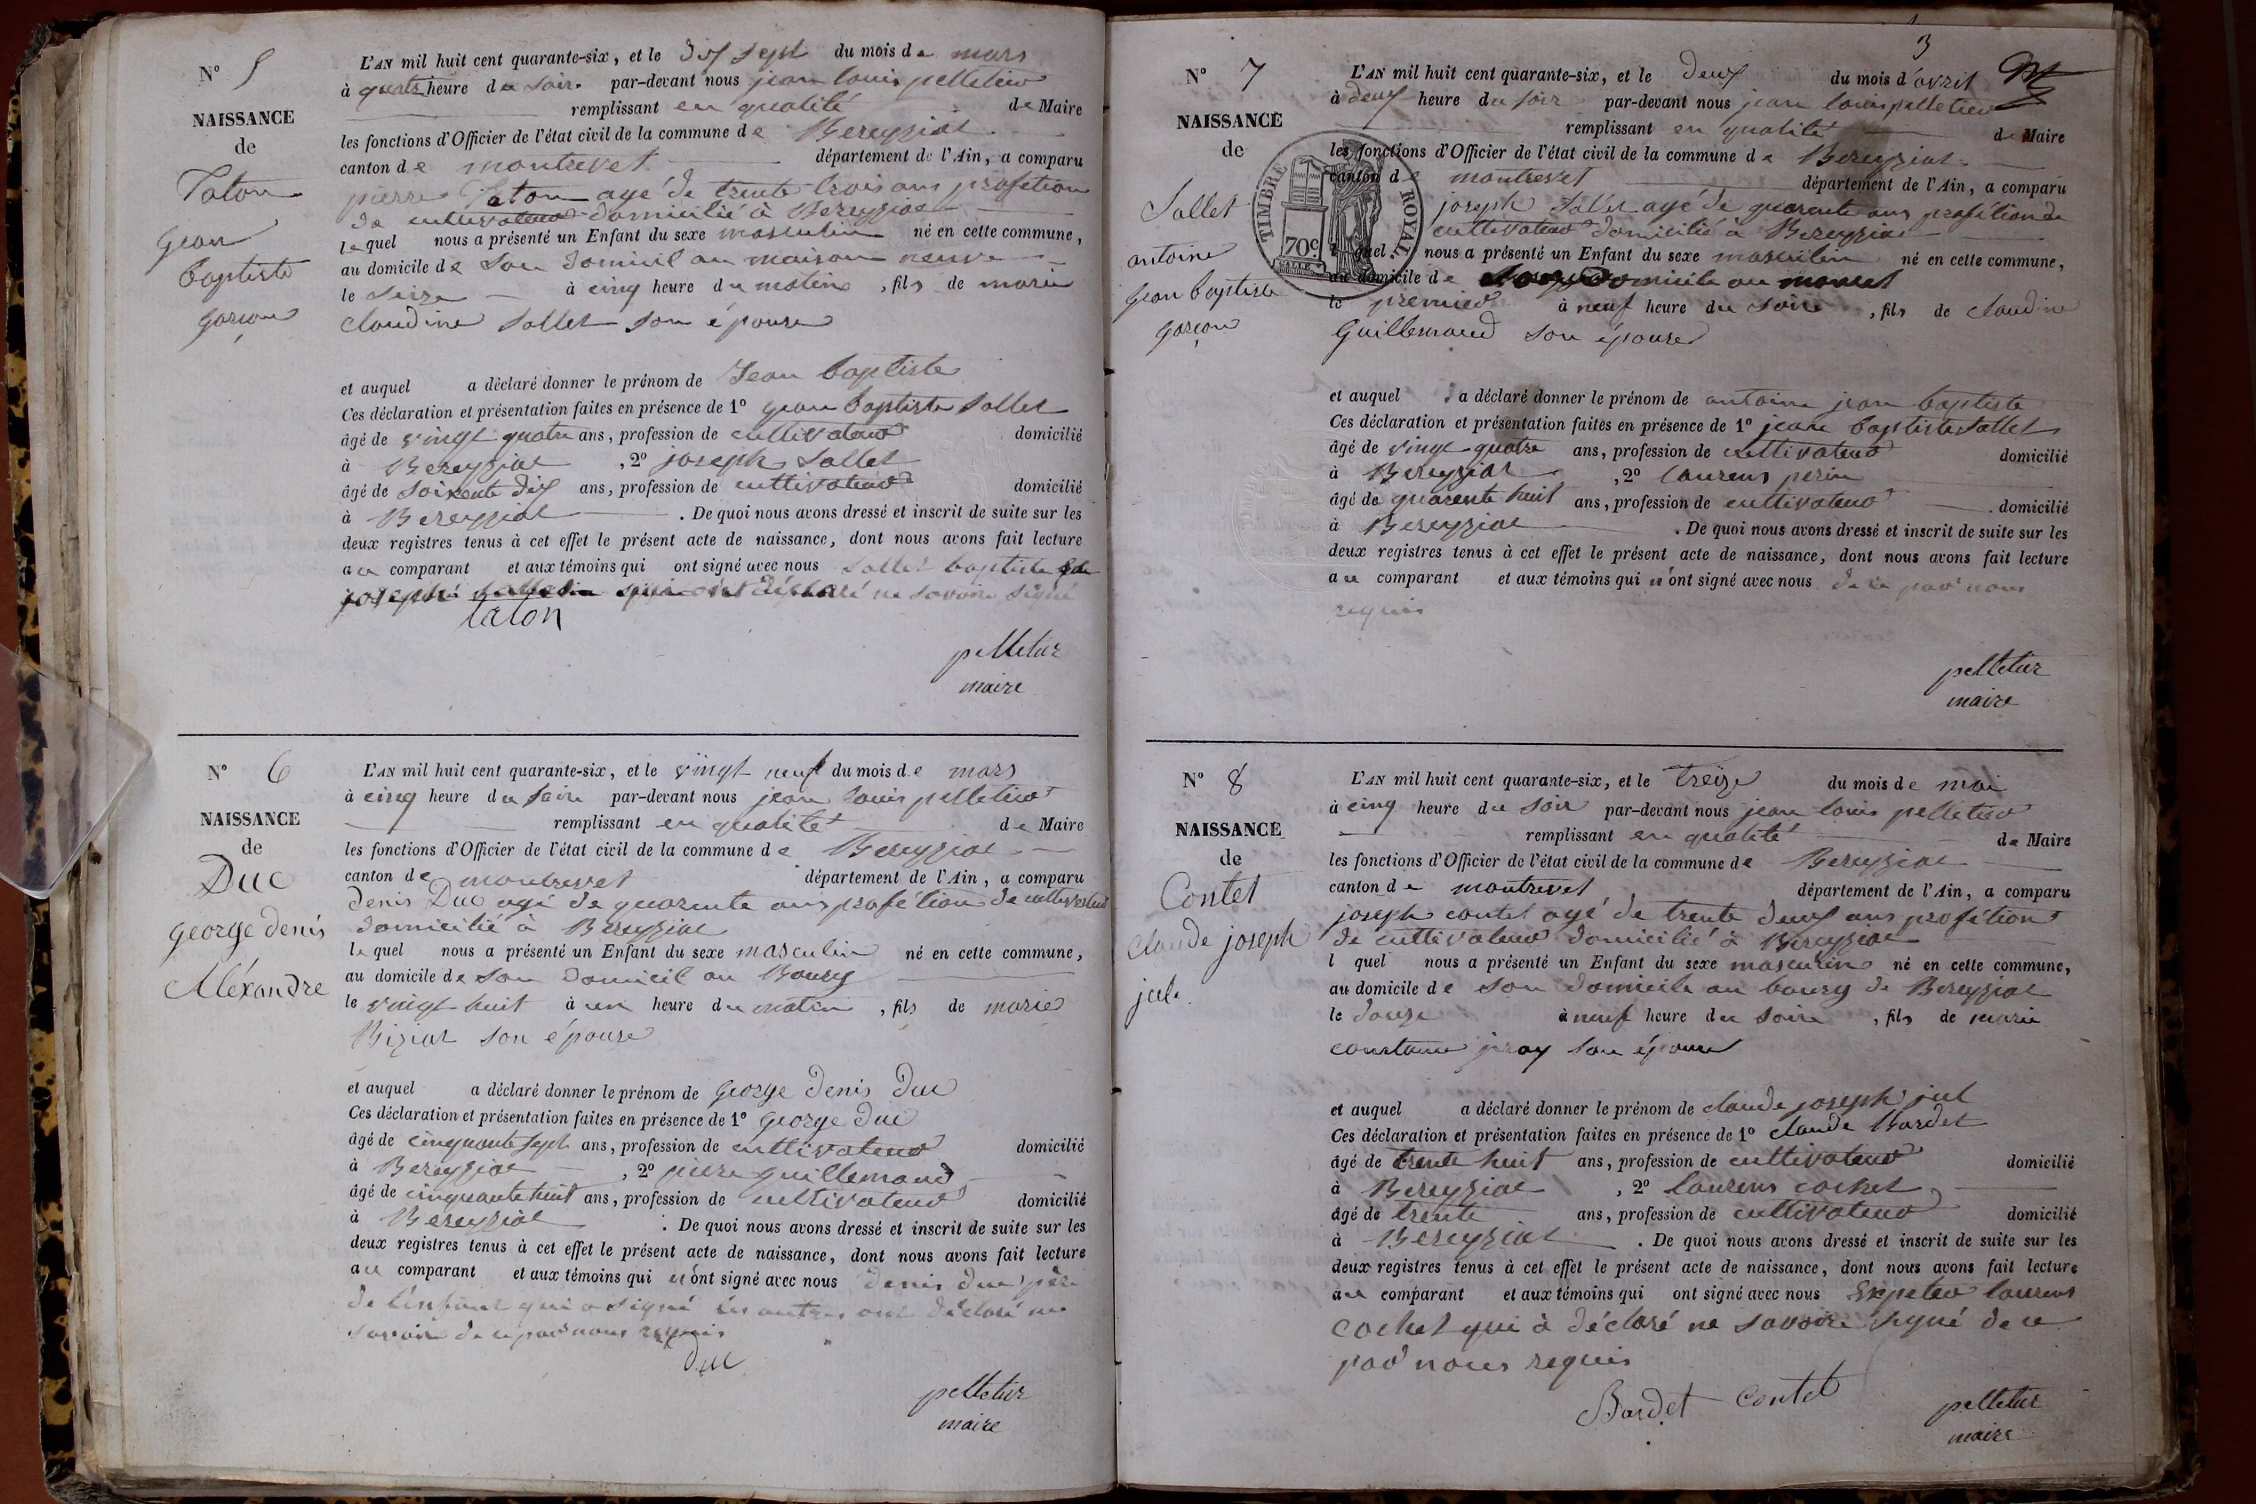 N° 5
NAISSANCE
de
Taton
Jean
baptiste
garçon
L'AN mil huit cent quarante-six, et le dix sept du mois de mars
à quatre heure du soir par-devant nous jean louis pelletier
remplissant en qualité de Maire
les fonctions d'Officier de l'état civil de la commune de Bereyziat
canton de montrevet département de l'Ain, a comparu
pierre Taton agé de trente trois ans profetion
de cultivateur domicilié à Bereyziat
lequel nous a présenté un Enfant du sexe masculin né en cette commune,
au domicile de son domicil au maison neuve
le seize à cinq heure du matin, fils de marie
claudine Sallet son épouse
et auquel a déclaré donner le prénom de Jean baptiste
Ces déclaration et présentation faites en présence de 1° Jean baptiste Sallet
âgé de vingt quatre ans, profession de cultivateur domicilié
à Bereyziat, 2° joseph Sallet
âgé de soixente dix ans, profession de cultivateur domicilié
à Bereyziat. De quoi nous avons dressé et inscrit de suite sur les
deux registres tenus à cet effet le présent acte de naissance, dont nous avons fait lecture
au comparant et aux témoins qui ont signé avec nous Sallet baptiste
joseph qui ont déclaré ne savoire signé
taton
pelletier
maire
N° 6
NAISSANCE
de
Duc
george denis
Aléxandre
L'AN mil huit cent quarante-six, et le vingt neuf du mois de mars
à cinq heure du soir par-devant nous jean louis pelletier
remplissant en qualité de Maire
les fonctions d'Officier de l'état civil de la commune de Bereyziat
canton de montrevet département de l'Ain, a comparu
denis Duc agé de quarente ans profétion de cultivateur
domicilié à Bereyziat
lequel nous a présenté un Enfant du sexe masculin né en cette commune,
au domicile de son domicil au Bourg
le vingt huit à un heure du matin, fils de marie
Biziat son épouse
et auquel a déclaré donner le prénom de george denis Duc
Ces déclaration et présentation faites en présence de 1° george duc
âgé de cinquante sept ans, profession de cultivateur domicilié
à Bereyziat, 2° piere guillemaud
âgé de cinquante huit ans, profession de cultivateur domicilié
à Bereyziat. De quoi nous avons dressé et inscrit de suite sur les
deux registres tenus à cet effet le présent acte de naissance, dont nous avons fait lecture
au comparant et aux témoins qui n'ont signé avec nous denis duc père
de l'enfant qui a signé les autres ont déclaré ne
savoir de ce par nous requis
duc
pelletier
maire
3
N° 7
NAISSANCE
de
Sallet
antoine
Jean baptiste
garçon
TIMBRE ROYAL
70c
L'AN mil huit cent quarante-six, et le deux du mois d'avril
à deux heure du soir par-devant nous jean louis pelletier
remplissant en qualité de Maire
les fonctions d'Officier de l'état civil de la commune de Bereyziat
canton de montrevet département de l'Ain, a comparu
joseph Sallet agé de quarente ans profétion de
cultivateur domicilié à Bereyziat
lequel nous a présenté un Enfant du sexe masculin né en cette commune,
au domicile de son domicile au
le premier à neuf heure du soire, fils de claudine
Guillemaud son épouse
et auquel a déclaré donner le prénom de antoine jean baptiste
Ces déclaration et présentation faites en présence de 1° jean baptiste Sallet
âgé de vingt quatre ans, profession de cultivateur domicilié
à Bereyziat, 2° laurens perin
âgé de quarente huit ans, profession de cultivateur domicilié
à Bereyziat. De quoi nous avons dressé et inscrit de suite sur les
deux registres tenus à cet effet le présent acte de naissance, dont nous avons fait lecture
au comparant et aux témoins qui n'ont signé avec nous de ce par nous
requis
pelletier
maire
N° 8
NAISSANCE
de
Contet
claude joseph
jule
L'AN mil huit cent quarante-six, et le treize du mois de mai
à cinq heure du soir par-devant nous jean louis pelletier
remplissant en qualité de Maire
les fonctions d'Officier de l'état civil de la commune de Bereyziat
canton de montrevet département de l'Ain, a comparu
joseph contet agé de trente deux ans profétion
de cultivateur domicilié à Bereyziat
l quel nous a présenté un Enfant du sexe masculin né en cette commune,
au domicile de son domicile au bourg de Bereyziat
le douze à neuf heure du soire, fils de marie
constance son épouse
et auquel a déclaré donner le prénom de claude joseph jul
Ces déclaration et présentation faites en présence de 1° claude Bardet
âgé de trente huit ans, profession de cultivateur domicilié
à Bereyziat, 2° laurens cochet
âgé de trente ans, profession de cultivateur domicilié
à Bereyziat. De quoi nous avons dressé et inscrit de suite sur les
deux registres tenus à cet effet le présent acte de naissance, dont nous avons fait lecture
au comparant et aux témoins qui ont signé avec nous laurens
cochet qui à déclaré ne savoire signé de ce
par nous requis
Bardet Contet
pelletier
maire